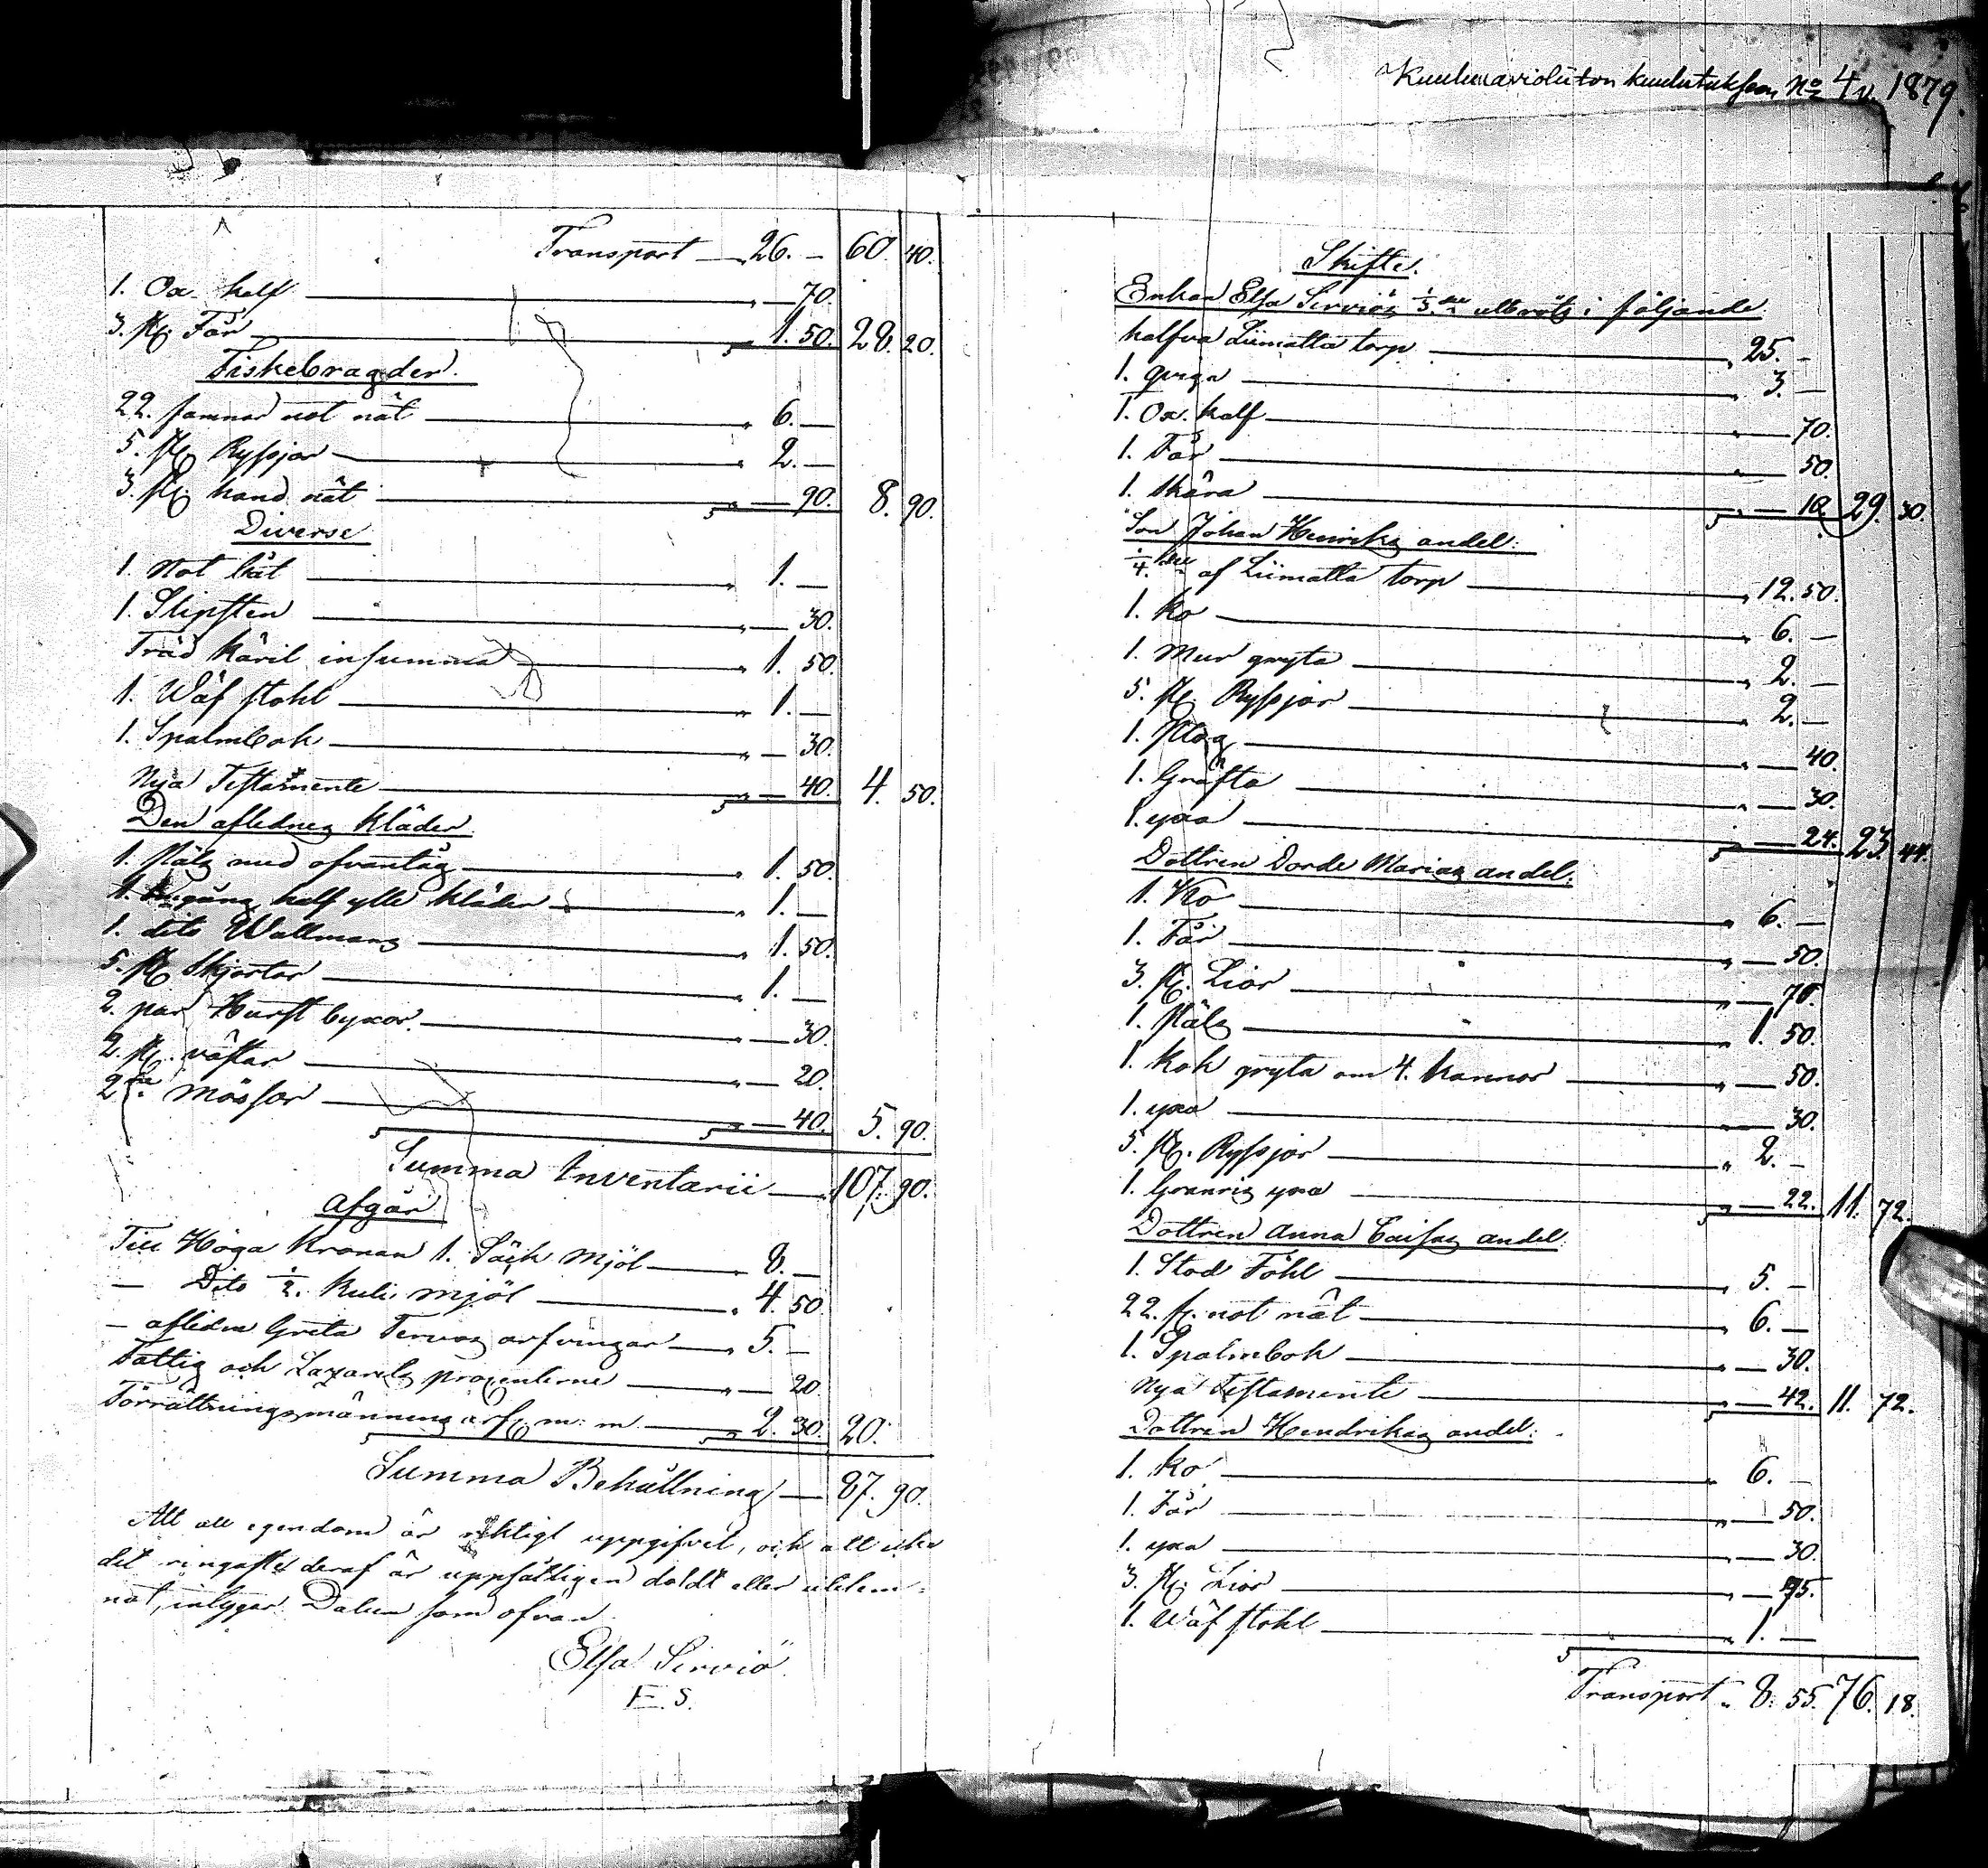 Transport — 26. — 60. 40.
1. Ox kalf — 70.
3. st. Får — 1. 50. 28. 20.
Fiskebragder.
22. famnar not nät — 6. —
5. st. Ryssjor — 2. —
3. st. hand nät — 90. 8. 90.
Diverse
1. Not båt — 1. —
1. Slipsten — 30.
Träd käril insumma — 1. 50.
1. Wäf stohl — 1. —
1. Spalmbok — 30.
Nya Testamente — 40. 4. 50.
Den aflednes kläder
1. Päls med ofvantäg — 1. 50.
1. gång half ylle kläder — 1. —
1. dito Wallmans — 1. 50.
5. st. Skjortor — 1. —
2. par Hurst byxor. — 30.
2. st. västar — 20.
2. mössor — 40. 5. 90.
Summa Inventarii — 107. 90.
Afgår
Till Höga Kronan 1. Säck Mjöl — 8. —
— Dito 1/2. Kuli mjöl — 4. 50
— aflidna Greta Tervos arfvingar — 5. —
Fattig och Lazarets procenterne — 20
Förrättningsmännens arf. m: m — 2. 30. 20.
Summa Behållning — 87. 90.
Att all egendom är riktigt uppgifvet, och att icke
det ringaste deraf är uppsåtligen doldt eller utelem-
nat, intygar Datum som ofvan
Elsa Serviö
E. S.
Kuulutuksen No 4 v. 1879.
Skifte.
Enkan Elsa Serviös 1/3 i följande
halfva Liimatta torp — 25. —
1. qviga — 3. —
1. Ox kalf — 70.
1. Får — 50.
1. Skära — 10 29. 30.
Son Johan Henriks andel:
1/4 af Liimatta torp — 12. 50.
1. Ko — 6. —
1. Mur gryta — 2. —
5. st. Ryssjor — 2. —
1. Plog — 40.
1. Gräfta — 30.
1. yxa — 24. 23. 44.
Dottren Dorde Marias andel:
1. Ko — 6. —
1. Får — 50.
3. st. Lior — 70.
1. Päls — 1. 50.
1. Kok gryta om 4. kannor — 50.
1. yxa — 30.
5. st. Ryssjor — 2. —
1. yxa — 22. 11. 72.
Dottren Anna Caisas andel:
1. Stod Föhl — 5. —
22. f. not nät — 6. —
1. Spalmbok — 30.
Nya Testamente — 42. 11. 72.
Dottren Hendrikas andel:
1. Ko — 6. —
1. Får — 50.
1. yxa — 30.
3. st. Lior — 75.
1. Wäf stohl — 1. —
Transport 8. 55. 76. 18.